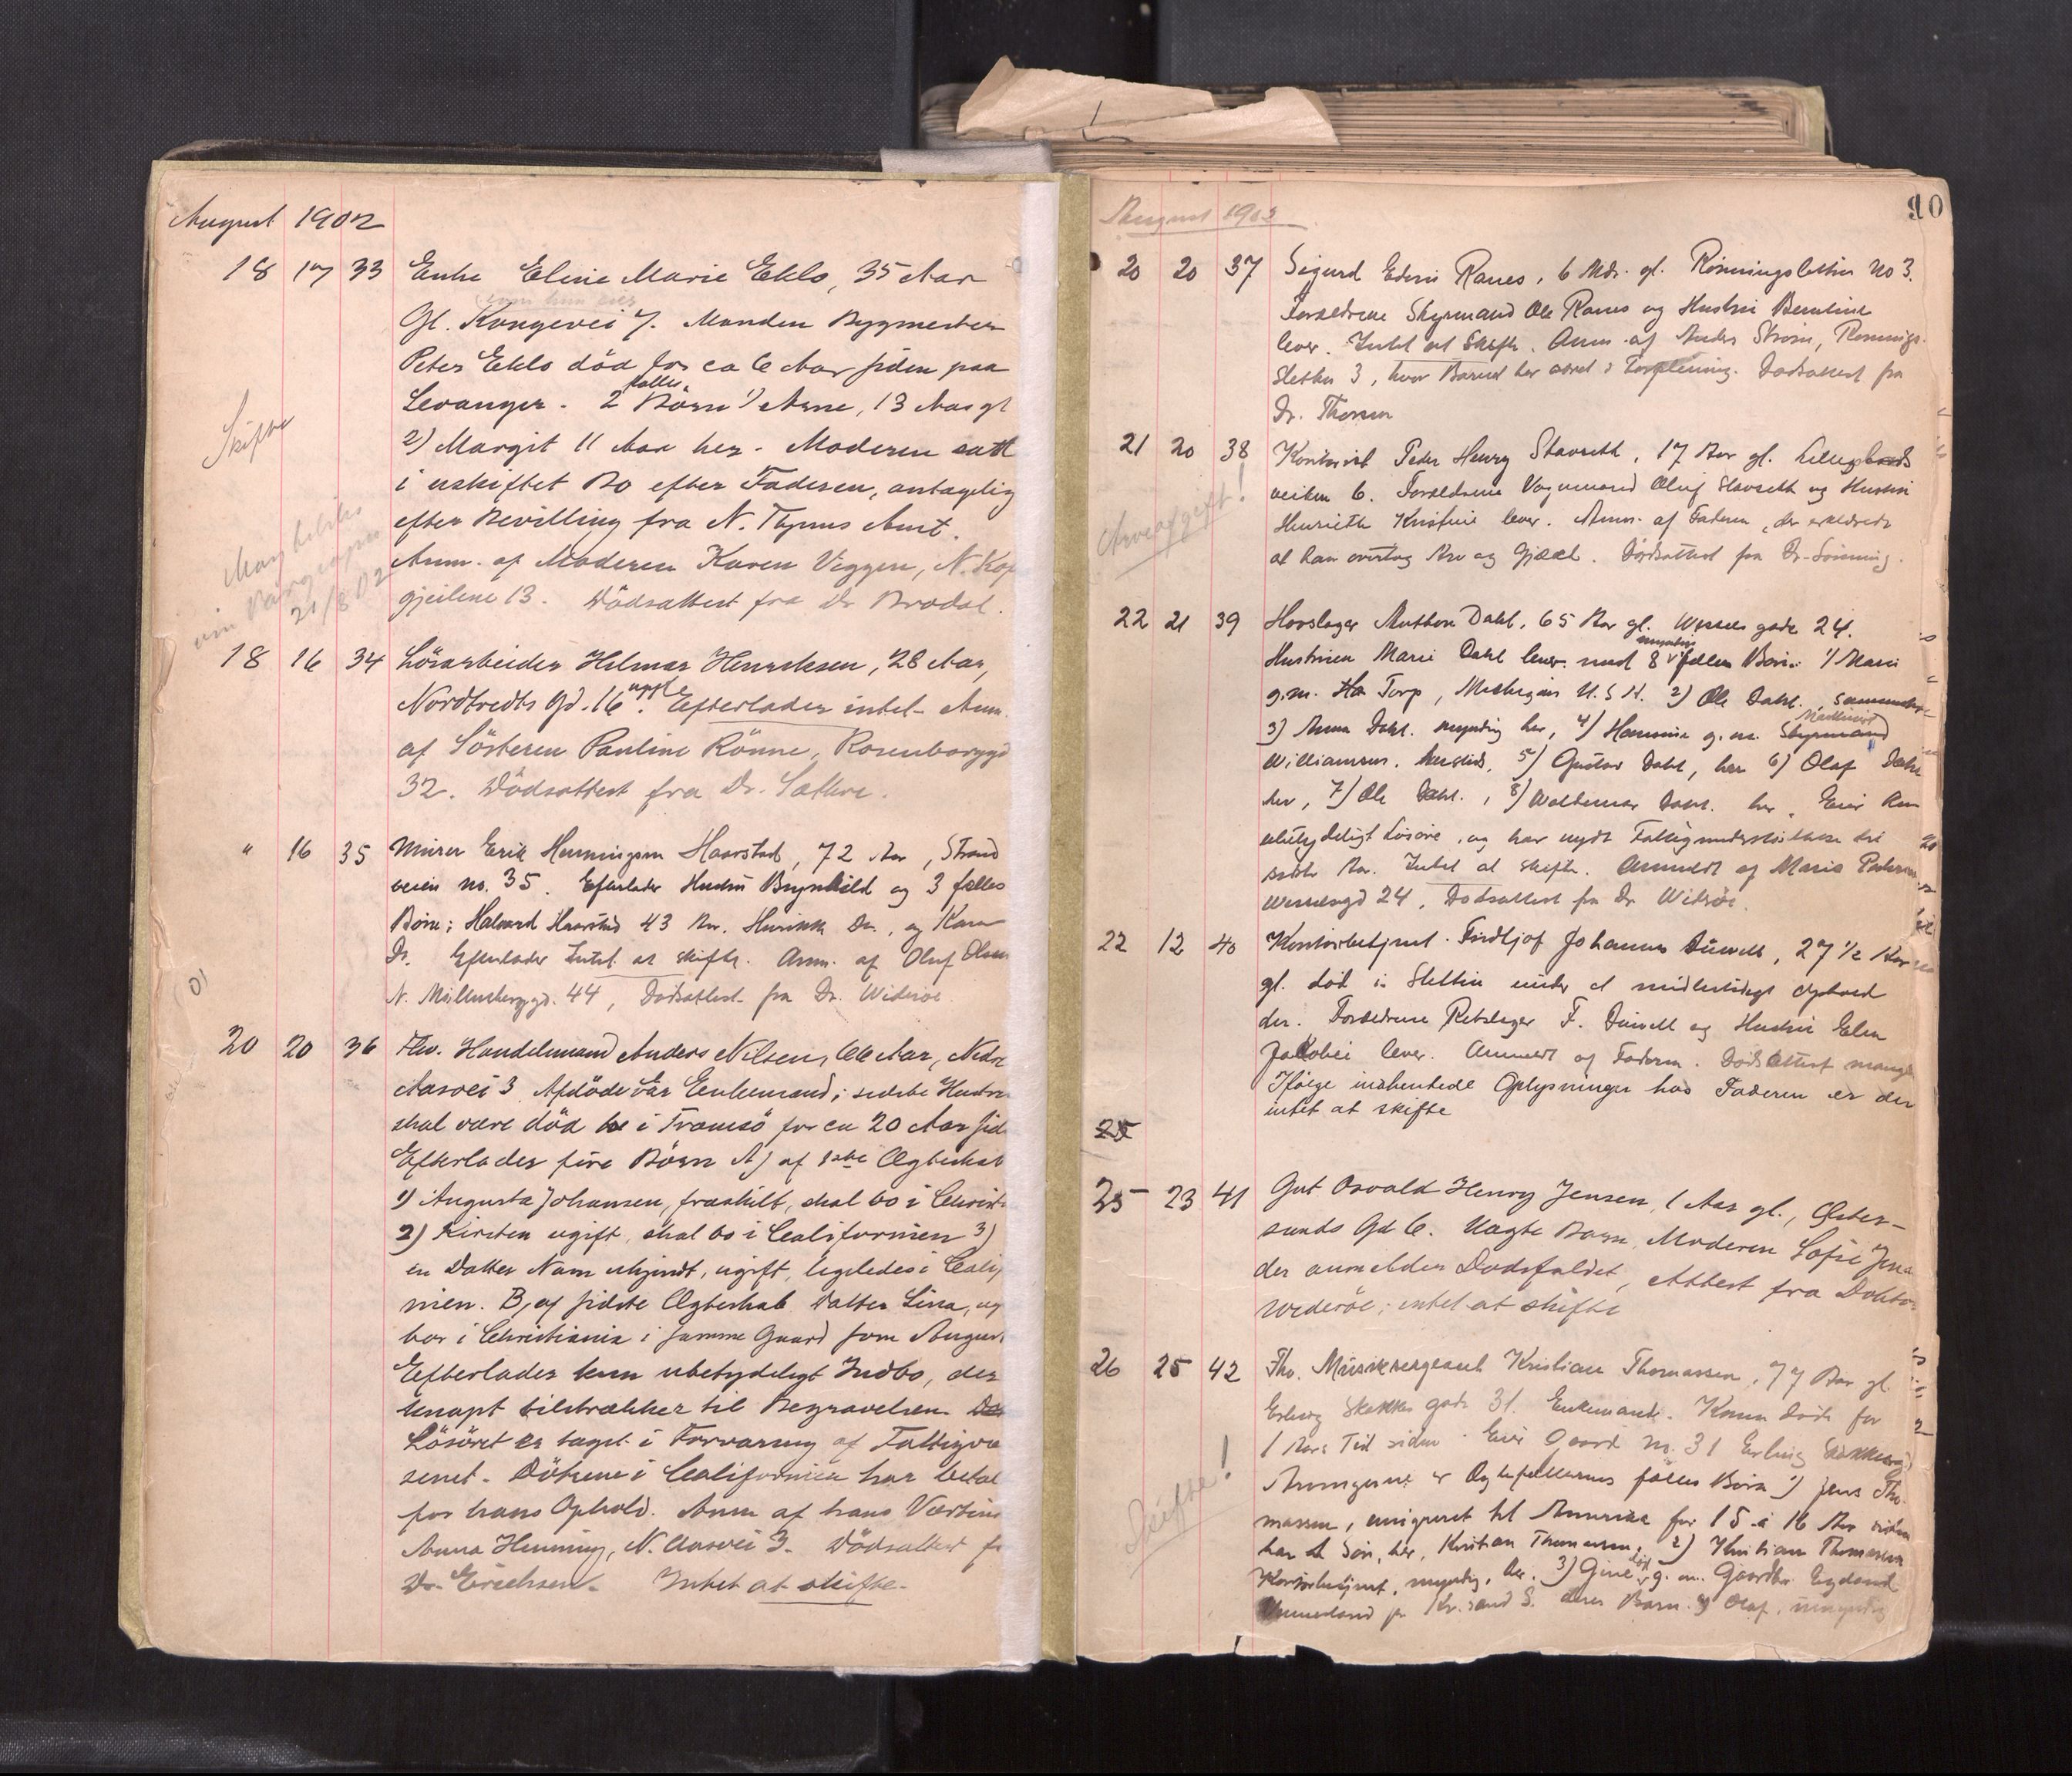 August 1902
18 17 33 Enke Eline Marie Eklo, 35 Aar
Gl. Kongevei 7. Manden Bygmester
Peter Eklo död for ca 6 Aar siden paa
Levanger. 2 fælles Börn 1) Arne, 13 Aar gl
2) Margit 11 Aar her. Moderen satt
i uskiftet Bo efter Faderen, antagelig
efter Bevilling fra N. Thjems Amt.
Anm. af Moderen Karen Veggen, N. Kop
gjeilene 13. Dödsattest fra Dr Brodal.
Skifte
21/8 02
18 16 34 Lösarbeider Hilmar Henriksen, 28 Aar,
Nordtvedts Gd. 16 ugift. Efterlader intet. Anm.
af Sösteren Pauline Rönne, Rosenborggd
32. Dödsattest fra Dr. Sæthre.
" 16 35 Murer Erik Henningsen Haarstad, 72 Aar, Strand
veien no. 35. Efterlader Hustru Brynhild og 3 fælles
Börn: Halvard Haarstad 43 Aar. Henrikk Do., og Karen
Do. Efterlader Intet at skifte. Anm. af Oluf Olsen
N. Möllenberggd. 44, Dödsattest fra Dr. Wideröe.
20 20 36 Fhv. Handelsmand Anders Nilsen, 66 Aar, Nedre
Aasvei 3 Afdöde var Enkemand; sidste Hustru
skal være död i Tromsö for ca 20 Aar sid
Efterlader fire Börn A) af 1ste Ægteskab
1) Augusta Johansen, fraskilt, skal bo i Christ
2) Kirsten ugift, skal bo i Californien 3)
en Datter Navn ukjendt, ugift, ligeledes i Calif
nien. B, af sidste Ægteskab Datter Lina, ug
bor i Christiania i samme Gaard som August
Efterlader kun ubetydeligt Indbo, der
knapt tilstrækker til Begravelsen.
Lösöret er taget i Forvaring af Fattigvæ
senet. Döttrene i Californien har betal
for hans Ophold. Anm af hans Værtind
Anna Henning, N. Aasvei 3. Dödsattest fr
Dr. Erichsen. Intet at skifte.
10
August 1902
20 20 37 Sigurd Edvin Ranes, 6 Mdr. gl. Rönningsletten No 3.
Forældrene Styrmand Ole Ranes og Hustru Berntine
lever. Intet at skifte. Anm. af Anders Ström, Rönnings
sletten 3, hvor Barnet har været i Forpleining. Dödsattest fra
Dr. Thorsen
21 20 38 Kontorist Peder Henry Stavseth, 17 Aar gl.
veiken 6. Forældrene Vognmand Oluf Stavseth og Hustru
Henriette Kristine lever. Anm. af Faderen, der erklærede
at han overtog Arv og Gjæld. Dödsattest fra Dr.
Arveafgift!
22 21 39 Hovslager Anthon Dahl, 65 Aar gl. Wessels gade 24.
Hustruen Marie Dahl lever med 8 myndige fælles Börn: 1) Marie
g.m. Torp, Michigan U.S.A. 2) Ole Dahl,
3) Anna Dahl. myndig her, 4) Hannine g.m. Styrmand
Williamsen, hersteds, 5) Gustav Dahl, her 6) Olaf Dahl
her, 7) Ole Dahl., 8) Waldemar Dahl. her. Eier kun
ubetydeligt Lösöre, og har nydt Fattigunderstöttelse det
sidste Aar. Intet at skifte. Anmeldt af Maria Pedersen
Wesselsgd 24, Dödsattest fra Dr Wideröe.
22 12 40 Kontorbetjent Fridtjof Johannes Duwell, 27 1/2 Aar
gl. död i Stettin under et midlertidigt Ophold
der. Forældrene Rebslager F. Duwell og Hustru Elen
Jakobie lever. Anmeldt af Faderen. Dödsattest mangl
Ifölge indhentede Oplysninger hos Faderen er der
intet at skifte
25
25 23 41 Gut Osvald Henry Jensen, 1 Aar gl., Öster-
sunds Gd 6. Uægte Barn. Moderen Sofie Jens
der anmelder Dödsfaldet, Attest fra Doktor
Wideröe; intet at skifte
26 25 42 Fhv. Musiksergeant Kristian Thomassen, 77 Aar gl.
Erling Skakkes gade 31. Enkemand. Konen döde for
1 Aars Tid siden. Eier Gaard No. 31 Erling Skakkesgd
Arvingerne er Ægtefællernes fælles Börn 1) Jens Tho
massen, emigreret til Amerika for 15 à 16 Aar siden
har en Sön, her, Kristian Thomassen, 2) Kristian Thomassen
Kontorbetjent, myndig, her. 3) Gine död g.m. Gaardbr.
Kr.sand S. deres Barn Olaf, umyndig
Skifte!